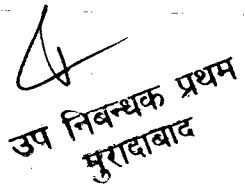 उप निबन्धक प्रथम
मुरादाबाद